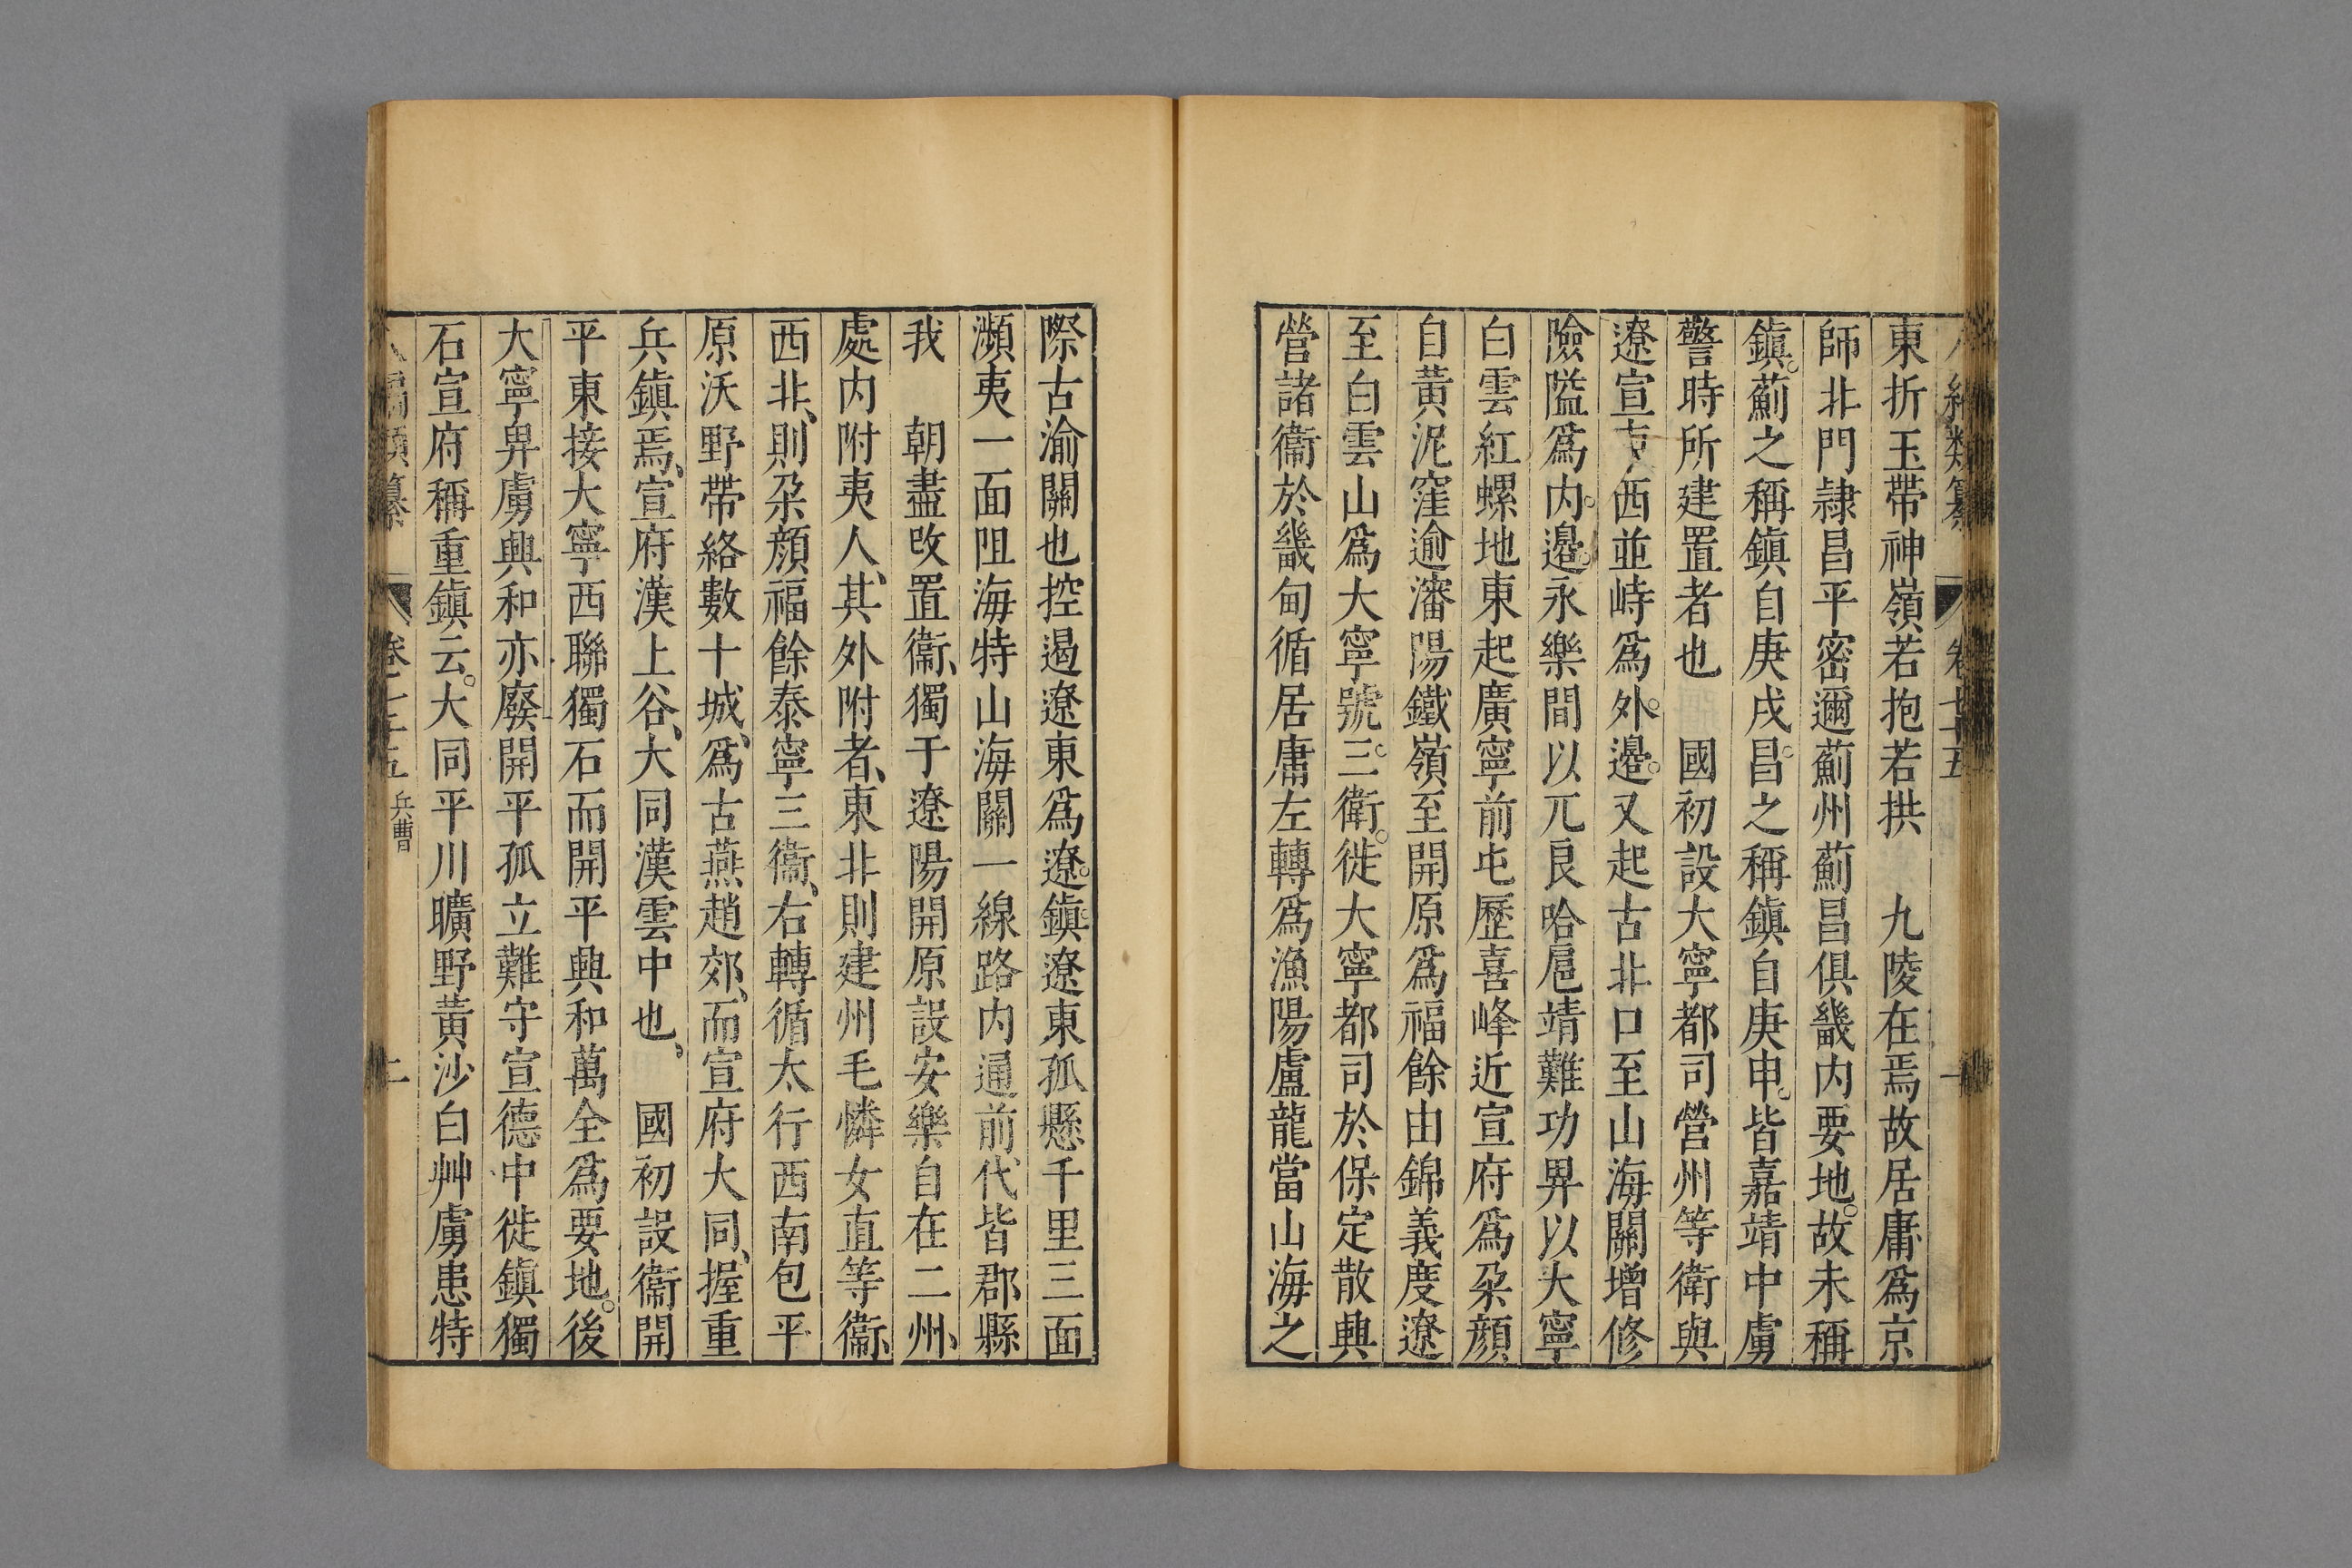 編類纂 卷七十五 一
東折玉帶神嶺若抱若拱　九陵在焉故居庸爲京
師北門隷昌平密邇薊州薊昌俱畿内要地。故未稱
鎮。薊之稱鎮自庚戌。昌之稱鎮自庚申。皆嘉靖中虜
警時所建置者也　國初設大寧都司營州等衛與
遼宣東西並峙爲外。邉。又起古北口至山海關增修
險隘爲内。邉。永樂間以兀良哈扈靖難功畀以大寧
白雲紅螺地東起廣寧前屯歷喜峰近宣府爲朶顔
自黄泥窪逾瀋陽鐵嶺至開原爲福餘由錦義度遼
至白雲山爲大寧號。三衛。徙大寧都司於保定散興
營諸衞於畿甸循居庸左轉爲漁陽盧龍當山海之
際古渝關也控遏遼東爲遼。鎮遼東孤懸千里三面
瀕夷一面阻海特山海關一線路内通前代皆郡縣
我　朝盡改置衞、獨于遼陽開原設安樂自在二州、
處内附夷人、其外附者、東北則建州毛憐女直等衞、
西北、則朶顔福餘泰寧三衞、右轉循太行西南包平
原沃野帶絡數十城、爲古燕趙郊、而宣府大同、握重
兵鎮焉、宣府漢上谷、大同漢雲中也、　國初設衞開
平東接大寧西聯獨石而開平興和萬全爲要地。後
大寧畀虜興和亦廢開平孤立難守宣德中徙鎮獨
石宣府稱重鎮云。大同平川曠野黄沙白艸虜患特
編類纂 卷七十五 兵曹 二